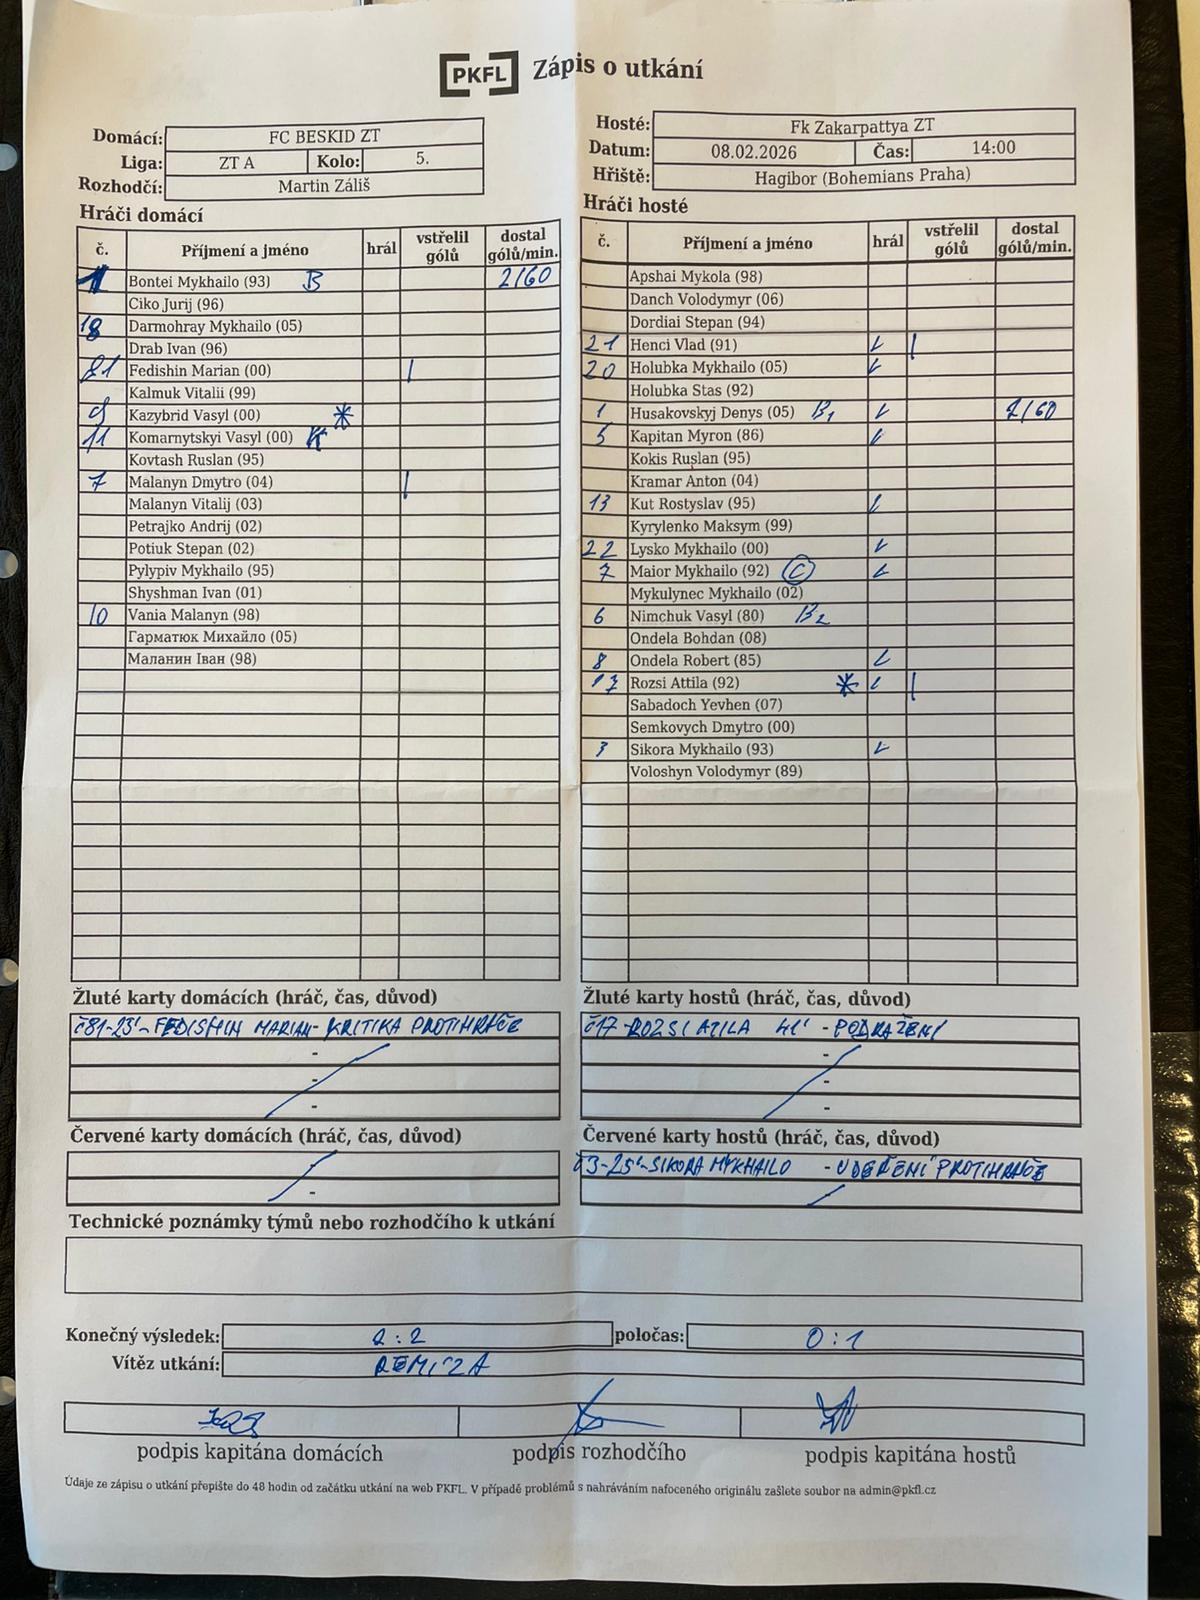 PKFL Zápis o utkání
Domácí: FC BESKID ZT
Liga: ZT A Kolo: 5.
Rozhodčí: Martin Záliš
Hosté: Fk Zakarpattya ZT
Datum: 08.02.2026 Čas: 14:00
Hřiště: Hagibor (Bohemians Praha)
Hráči domácí
č. Příjmení a jméno hrál vstřelil gólů dostal gólů/min.
1 Bontei Mykhailo (93) B 2/60
Ciko Jurij (96)
18 Darmohray Mykhailo (05)
Drab Ivan (96)
81 Fedishin Marian (00) |
Kalmuk Vitalii (99)
9 Kazybrid Vasyl (00) *
11 Komarnytskyi Vasyl (00) K
Kovtash Ruslan (95)
7 Malanyn Dmytro (04) |
Malanyn Vitalij (03)
Petrajko Andrij (02)
Potiuk Stepan (02)
Pylypiv Mykhailo (95)
Shyshman Ivan (01)
10 Vania Malanyn (98)
Гарматюк Михайло (05)
Маланин Іван (98)
Hráči hosté
č. Příjmení a jméno hrál vstřelil gólů dostal gólů/min.
Apshai Mykola (98)
Danch Volodymyr (06)
Dordiai Stepan (94)
21 Henci Vlad (91) ✓ |
20 Holubka Mykhailo (05) ✓
Holubka Stas (92)
1 Husakovskyj Denys (05) B1 ✓ 2/60
5 Kapitan Myron (86) ✓
Kokis Ruslan (95)
Kramar Anton (04)
13 Kut Rostyslav (95) ✓
Kyrylenko Maksym (99)
22 Lysko Mykhailo (00) ✓
7 Maior Mykhailo (92) C ✓
Mykulynec Mykhailo (02)
6 Nimchuk Vasyl (80) B2
Ondela Bohdan (08)
8 Ondela Robert (85) ✓
17 Rozsi Attila (92) * ✓ |
Sabadoch Yevhen (07)
Semkovych Dmytro (00)
3 Sikora Mykhailo (93) ✓
Voloshyn Volodymyr (89)
Žluté karty domácích (hráč, čas, důvod)
č81-23'-FEDISHIN MARIAN-KRITIKA PROTIHRÁČE
-
-
-
Žluté karty hostů (hráč, čas, důvod)
č17-ROZSI ATILA 41' - PODRAŽENÍ
-
-
-
Červené karty domácích (hráč, čas, důvod)
-
Červené karty hostů (hráč, čas, důvod)
č3-25'-SIKORA MYKHAILO - UDEŘENÍ PROTIHRÁČE
Technické poznámky týmů nebo rozhodčího k utkání
Konečný výsledek: 2:2 poločas: 0:1
Vítěz utkání: REMÍZA
podpis kapitána domácích podpis rozhodčího podpis kapitána hostů
Údaje ze zápisu o utkání přepište do 48 hodin od začátku utkání na web PKFL. V případě problémů s nahráváním nafoceného originálu zašlete soubor na admin@pkfl.cz